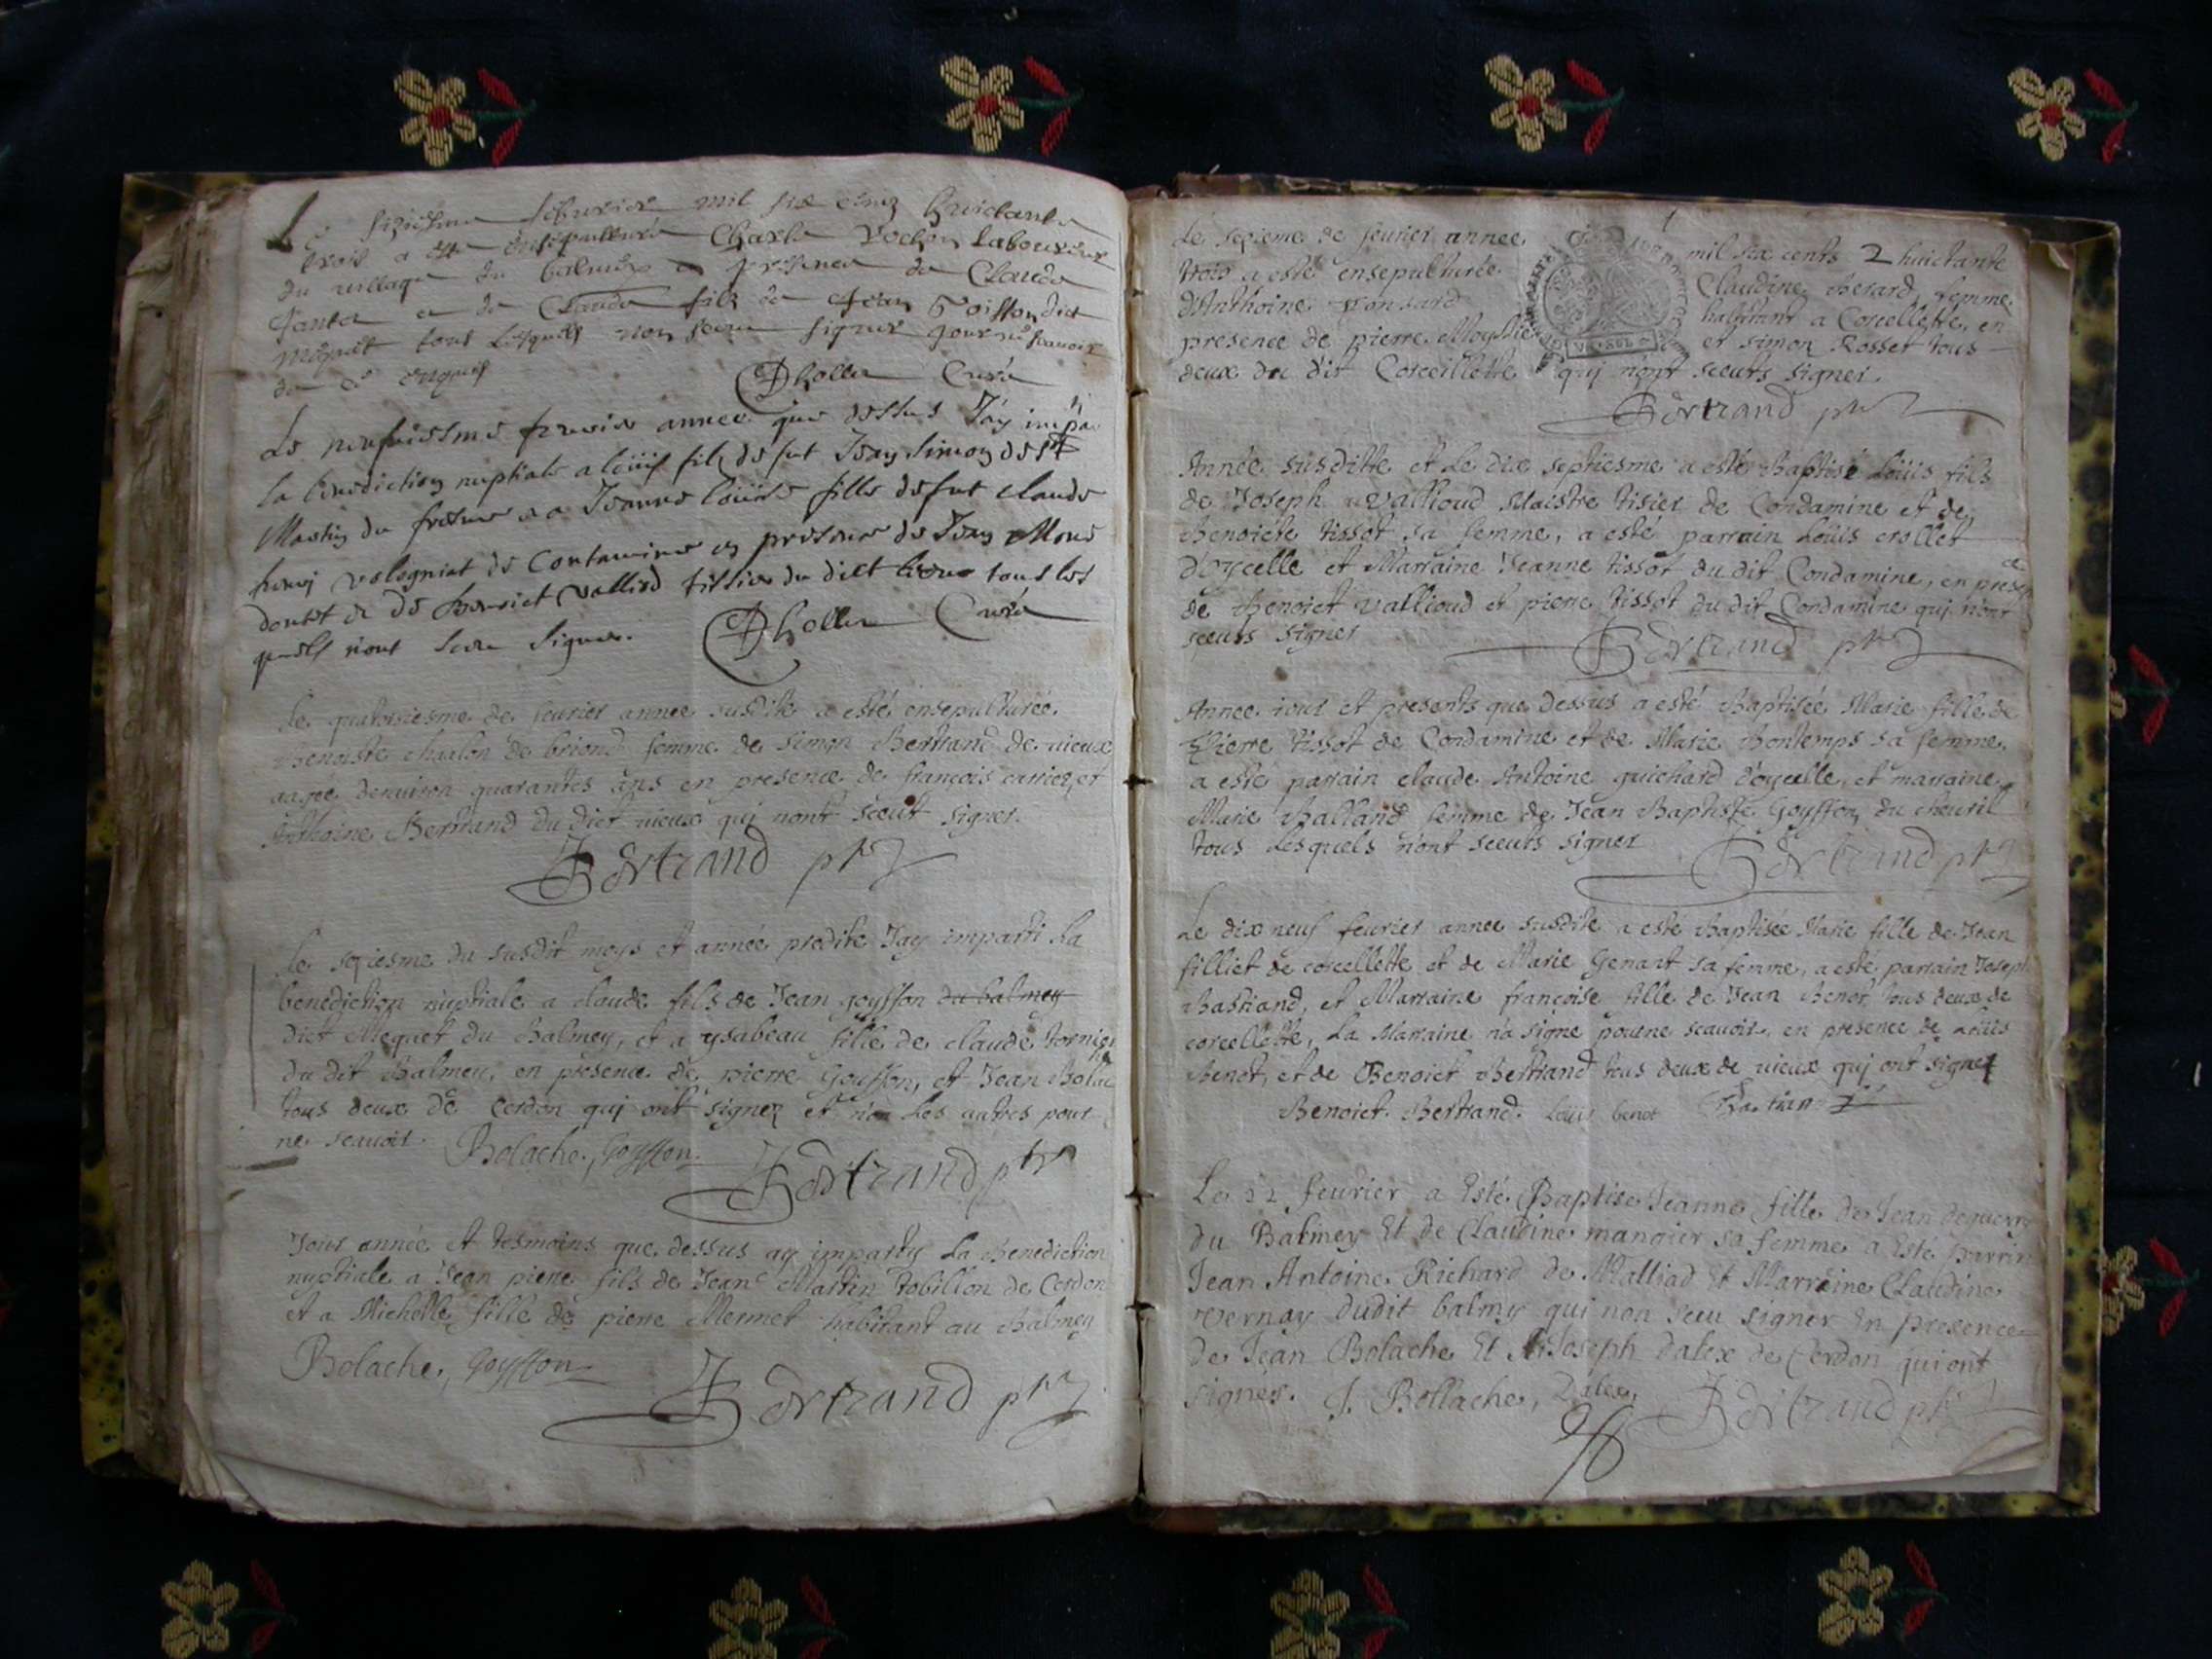 Le siziesme febvrier mil six cens huictante
trois a esté ensepulturé Charle Rochon laboureur
du village du balmey en presence de Claude
et de Claude fils de Jean Goisson dict
Mequet tous lesquels non sceu signer pour ne scavoir
de ce enquis
Dholler Curé
Le neufuiesme feurier annee que dessus J'ay impar
la benediction nuptiale a louis fils de fut Jean Simon dict
Martin du fresne et a Jeanne louise fille de fut claude
de Contamine en presence de Jean
et de benoict valliod tissier du dict lieu tous les
quels n'ont sceu signer.
Dholler Curé
Le quatorsiesme de feurier annee susdite a esté ensepulturée
Benoiste chaalon de briond femme de Simon Bertrand de uieux
aagée denuiron quarantes ans en presence de françois carrier, et
Anthoine Bertrand du dict uieux qui nont sceut signer.
Bertrand ptre
Le seziesme du susdit moys et année predite Jay imparti La
benediction nuptiale a claude fils de Jean goysson du balmey
dict Mequet du Balmey, et a ysabeau fille de claude tornier
du dit Balmey, en presence de pierre Goysson, et Jean Bolac
tous deux de Cerdon qui ont signez et non Les autres pour
ne scauoir. Bolache, Goysson.
Bertrand ptre
Jour année et tesmoins que dessus ay imparty La Benediction
nuptiale a Jean pierre fils de Jean Martin tobillon de Cerdon
et a Michelle fille de pierre Mermet habitant au Balmey
Bolache, Goysson
Bertrand ptre
Le sezieme de feurier annee mil six cents 2 huictante
trois a esté ensepulturée Claudine Berard femme
d'Anthoine ponsard habitant a Corcellette, en
presence de pierre et Simon Rosset tous
deux du dit Corcellette qui n'ont sceuts signer
Bertrand ptre
Année susditte et Le dix septiesme a esté Baptisé Loüis fils
de Joseph Vallioud Maistre tisier de Condamine et de
Benoiste tissot sa femme, a esté parrain Loüis crollet
d'oycelle et Marraine Jeanne tissot du dit Condamine, en presence
de Benoict Vallioud et pierre tissot du dit Condamine qui n'ont
sceuts signer
Bertrand ptre
Annee iour et presents que dessus a esté Baptisée Marie fille de
Pierre tissot de Condamine et de Marie Bontemps sa femme,
a esté parrain claude Antoine guichard d'oycelle, et marraine
Marie Balland femme de Jean Baptiste Goysson du cheuril
tous Lesquels n'ont sceuts signer
Bertrand ptre
Le dix neuf feurier annee susdite a esté Baptisée Marie fille de Jean
filliet de corcellette et de Marie Genant sa femme, a esté parrain Joseph
Bastiand, et Marraine françoise fille de Jean Benot tous deux de
corcellette, La Marraine na signé pour ne scauoir, en presence de Loüis
Benot, et de Benoict Bertrand tous deux de uieux qui ont signer
Benoict. Bertrand. Loüis benot Bastian
Le 22 feurier a Esté Baptise Jeanne fille de Jean deguerry
du Balmey Et de Claudine manoier sa femme a Esté parrin
Jean Antoine Richard de Malliad Et Marreine Claudine
Vernay dudit balmy qui non sceu signer En presence
de Jean Bolache Et Joseph dalex de Cerdon qui ont
signér. J. Bollache, Dalex, Bertrand ptre